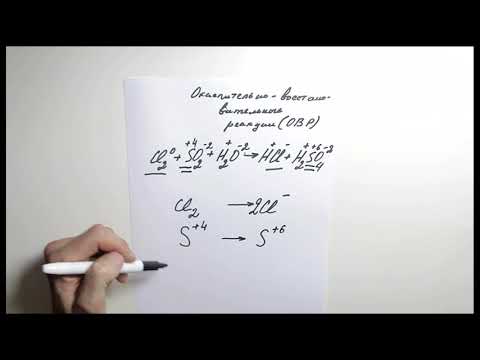 Окислительно-восстано-
вительные
реакции (ОВР)
Cl₂⁰ + S⁺⁴O₂⁻² + H₂⁺O⁻² → H⁺Cl⁻ + H₂⁺S⁺⁶O₄⁻²
Cl₂ → 2Cl⁻
S⁺⁴ → S⁺⁶